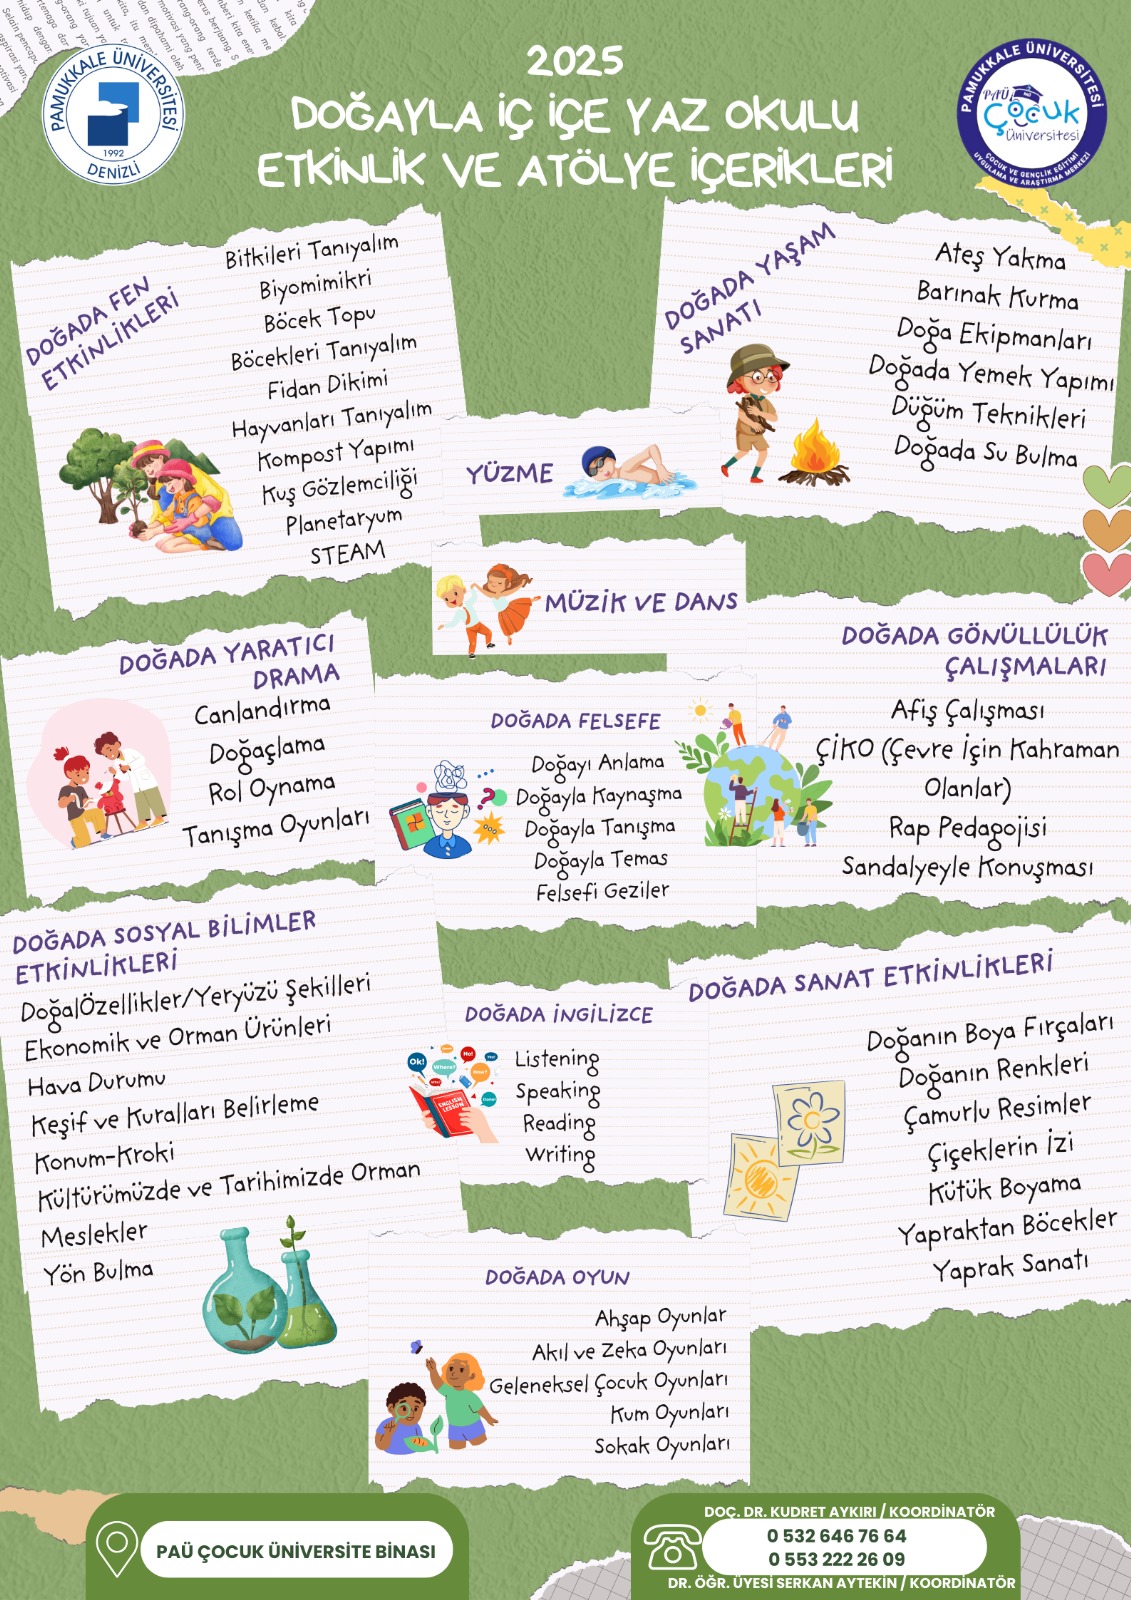 PAMUKKALE ÜNİVERSİTESİ
1992
DENİZLİ
2025
DOĞAYLA İÇ İÇE YAZ OKULU
ETKİNLİK VE ATÖLYE İÇERİKLERİ
PAMUKKALE ÜNİVERSİTESİ
PAÜ
Çocuk
Üniversitesi
ÇOCUK VE GENÇLİK EĞİTİMİ
UYGULAMA VE ARAŞTIRMA MERKEZİ
DOĞADA FEN
ETKİNLİKLERİ
Bitkileri Tanıyalım
Biyomimikri
Böcek Topu
Böcekleri Tanıyalım
Fidan Dikimi
Hayvanları Tanıyalım
Kompost Yapımı
Kuş Gözlemciliği
Planetaryum
STEAM
DOĞADA YAŞAM
SANATI
Ateş Yakma
Barınak Kurma
Doğa Ekipmanları
Doğada Yemek Yapımı
Düğüm Teknikleri
Doğada Su Bulma
YÜZME
MÜZİK VE DANS
DOĞADA YARATICI
DRAMA
Canlandırma
Doğaçlama
Rol Oynama
Tanışma Oyunları
DOĞADA FELSEFE
Doğayı Anlama
Doğayla Kaynaşma
Doğayla Tanışma
Doğayla Temas
Felsefi Geziler
DOĞADA GÖNÜLLÜLÜK
ÇALIŞMALARI
Afiş Çalışması
ÇİKO (Çevre İçin Kahraman
Olanlar)
Rap Pedagojisi
Sandalyeyle Konuşması
DOĞADA SOSYAL BİLİMLER
ETKİNLİKLERİ
DoğalÖzellikler/Yeryüzü Şekilleri
Ekonomik ve Orman Ürünleri
Hava Durumu
Keşif ve Kuralları Belirleme
Konum-Kroki
Kültürümüzde ve Tarihimizde Orman
Meslekler
Yön Bulma
DOĞADA İNGİLİZCE
Ok!
No!
Where?
ENGLISH
LESSON
Listening
Speaking
Reading
Writing
DOĞADA SANAT ETKİNLİKLERİ
Doğanın Boya Fırçaları
Doğanın Renkleri
Çamurlu Resimler
Çiçeklerin İzi
Kütük Boyama
Yapraktan Böcekler
Yaprak Sanatı
DOĞADA OYUN
Ahşap Oyunlar
Akıl ve Zeka Oyunları
Geleneksel Çocuk Oyunları
Kum Oyunları
Sokak Oyunları
PAÜ ÇOCUK ÜNİVERSİTE BİNASI
DOÇ. DR. KUDRET AYKIRI / KOORDİNATÖR
0 532 646 76 64
0 553 222 26 09
DR. ÖĞR. ÜYESİ SERKAN AYTEKİN / KOORDİNATÖR